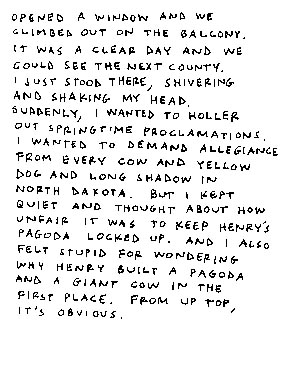 OPENED A WINDOW AND WE
CLIMBED OUT ON THE BALCONY.
IT WAS A CLEAR DAY AND WE
COULD SEE THE NEXT COUNTY.
I JUST STOOD THERE, SHIVERING
AND SHAKING MY HEAD.
SUDDENLY, I WANTED TO HOLLER
OUT SPRINGTIME PROCLAMATIONS.
I WANTED TO DEMAND ALLEGIANCE
FROM EVERY COW AND YELLOW
DOG AND LONG SHADOW IN
NORTH DAKOTA. BUT I KEPT
QUIET AND THOUGHT ABOUT HOW
UNFAIR IT WAS TO KEEP HENRY'S
PAGODA LOCKED UP. AND I ALSO
FELT STUPID FOR WONDERING
WHY HENRY BUILT A PAGODA
AND A GIANT COW IN THE
FIRST PLACE. FROM UP TOP,
IT'S OBVIOUS.